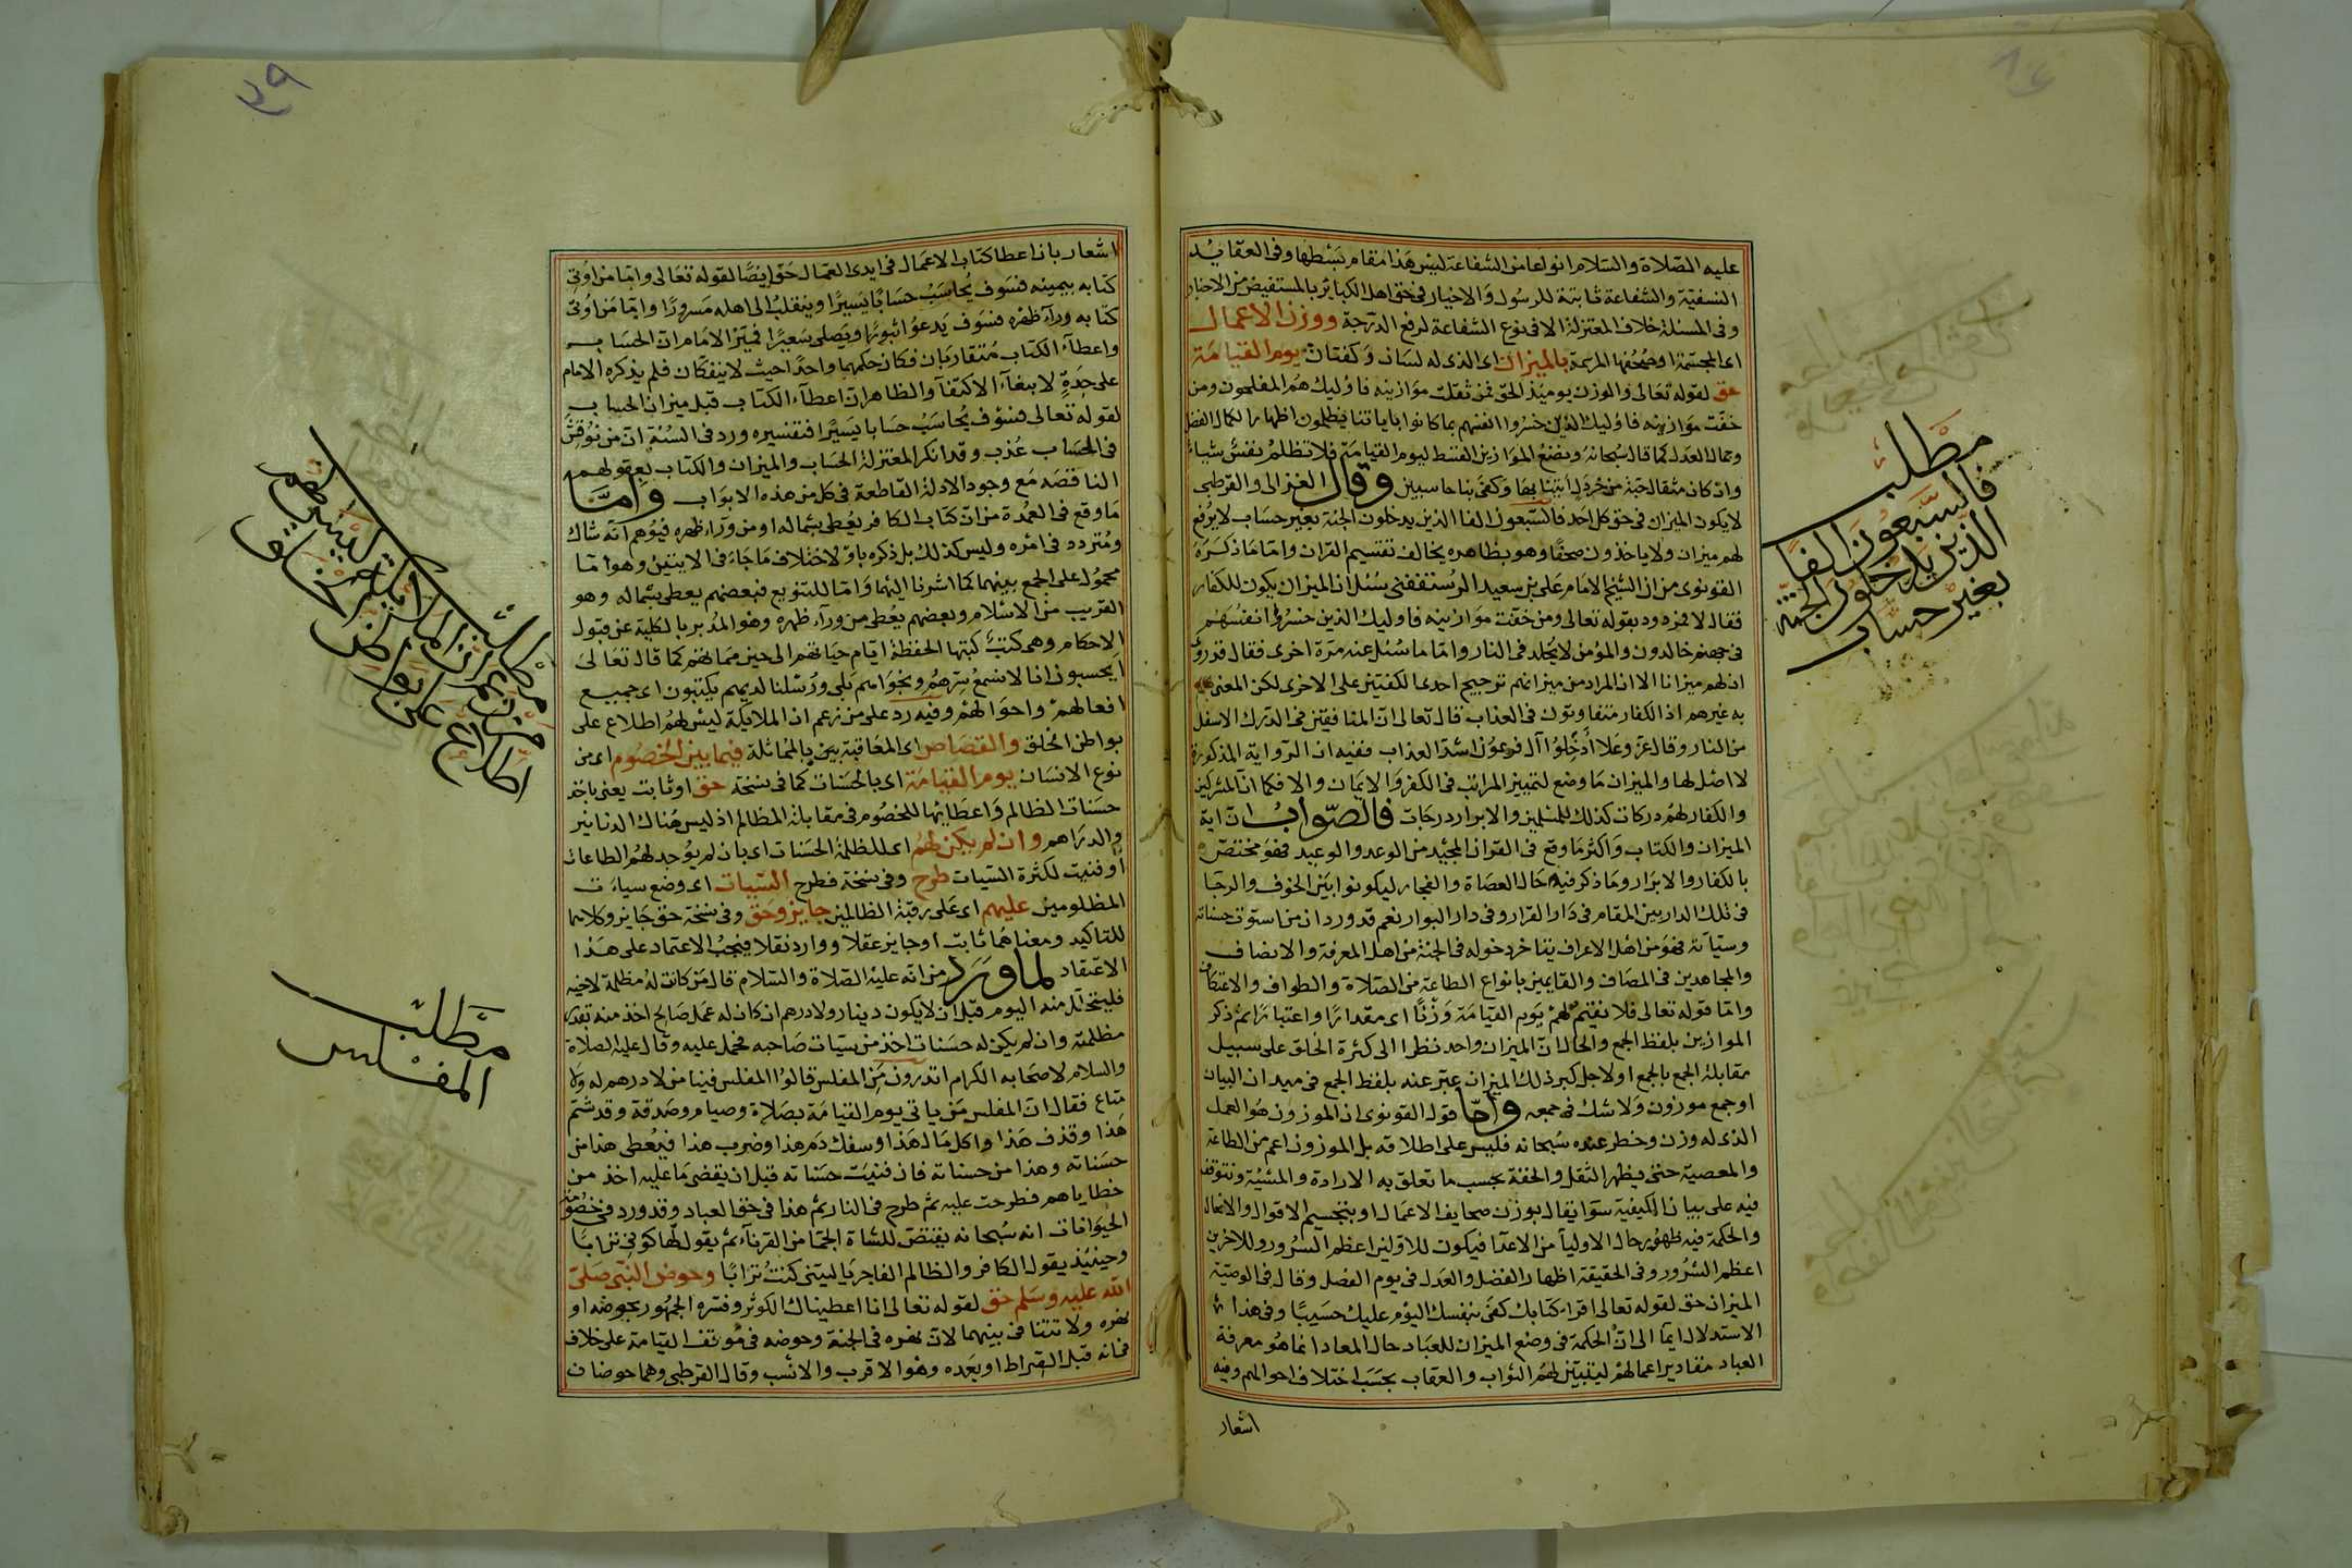 عليه الصلاة والسلام انواعا من الشفاعة ليس هذا مقام بسطها وفى العقايد
النسفية والشفاعة ثابتة للرسول والاخيار فى حق اهل الكباير بالمستفيض من الاخبار
وفى المسئلة خلاف المعتزلة الا فى نوع الشفاعة لرفع الدرجة ووزن الاعمال
اى المجسمة او صحفها المرسمة بالميزان اى الذى له لسان وكفتان يوم القيامة
حق لقوله تعالى والوزن يوميذ الحق فمن ثقلت موازينه فاوليك هم المفلحون ومن
خفت موازينه فاوليك الذين خسروا انفسهم بما كانوا باياتنا يظلمون اظهارا لكمال الفضل
وجمال العدل كما قال سبحانه ونضع الموازين القسط ليوم القيامة فلا تظلم نفس شياء
وان كان مثقال حبة من خردل اتينا بها وكفى بنا حاسبين وقال الغزالى والقرطبى
لا يكون الميزان فى حق كل احد فالسبعون الفا الذين يدخلون الجنة بغير حساب لا يرفع
لهم ميزان ولا ياخذون صحفا وهو بظاهره يخالف تقسيم القران واما ما ذكره
القونوى من ان الشيخ الامام على بن سعيد الرستففنى سئل ان الميزان يكون للكفار
فقال لا فمردود بقوله تعالى ومن خفت موازينه فاوليك الذين خسروا انفسهم
فى جهنم خالدون والمؤمن لا يخلد فى النار واما ما سئل عنه مرة اخرى فقال قد روى
ان لهم ميزانا الا ان المراد من ميزانهم ترجيح احدى الكفتين على الاخرى لكن المعنى
به غيرهم اذ الكفار متفاوتون فى العذاب قال تعالى ان المنافقين فى الدرك الاسفل
من النار وقال عز وعلا ادخلوا آل فرعون اشد العذاب ففيه ان الرواية المذكورة
لا اصل لها والميزان ما وضع لتمييز المراتب فى الكفر والايمان والا فكما ان المشركين
والكفار لهم دركات كذلك للمسلمين والابرار درجات فالصواب ان اية
الميزان والكتاب واكثر ما وقع فى القران المجيد من الوعد والوعيد فهو مختص
بالكفار والابرار وما ذكر فيه حال العصاة والفجار ليكونوا بين الخوف والرجا
فى تلك الدار بين المقام فى دار القرار وفى دار البوار نعم قد ورد ان من استوت حسناته
وسيآته فهو من اهل الاعراف يتاخر دخوله فى الجنة من اهل المعرفة والانصاف
والمجاهدين فى المصاف والقايمين بانواع الطاعة من الصلاة والطواف والاعتكاف
واما قوله تعالى فلا نقيم لهم يوم القيامة وزنا اى مقدارا واعتبارا ثم ذكر
الموازين بلفظ الجمع والحال ان الميزان واحد نظرا الى كثرة الخلق على سبيل
مقابلة الجمع بالجمع او لاجل كبر ذلك الميزان عبر عنه بلفظ الجمع فى ميدان البيان
او جمع موزون ولا شك فى جمعه واما قول القونوى ان الموزون هو العمل
الذى له وزن وخطر عنده سبحانه فليس على اطلاقه بل الموزون اعم من الطاعة
والمعصية حتى يظهر الثقل والخفة بحسب ما تعلق به الارادة والمشية ونتوقف
فيه على بيان الكيفية سوا يقال بوزن صحايف الاعمال او بتجسيم الاقوال والافعال
والحكمة فيه ظهور حال الاوليا من الاعدا فيكون للاولين اعظم السرور وللاخرين
اعظم الشرور وفى الحقيقة اظهار الفضل والعدل فى يوم الفصل وقال فى الوصية
الميزان حق لقوله تعالى اقراء كتابك كفى بنفسك اليوم عليك حسيبا وفى هذا
الاستدلال ايما الى ان الحكمة فى وضع الميزان للعباد حال المعاد انما هو معرفة
العباد مقادير اعمالهم ليتبين لهم الثواب والعقاب بحسب اختلاف احوالهم وفيه
اشعار
مطلب
فالسبعون الفا
الذين يدخلون الجنة
بغير حساب
٣٩
اشعار بان اعطا كتاب الاعمال فى ايدى العمال حق ايضا لقوله تعالى واما من اوتى
كتابه بيمينه فسوف يحاسب حسابا يسيرا وينقلب الى اهله مسرورا واما من اوتى
كتابه ورآء ظهره فسوف يدعوا ثبورا ويصلى سعيرا فميز الامام ان الحساب
واعطآء الكتاب متقاربان فكان حكمهما واحدا حيث لا ينفكان فلم يذكره الامام
على حدة لابتغآء الاكتفآ والظاهر ان اعطآء الكتاب قبل ميزان الحساب
لقوله تعالى فسوف يحاسب حسابا يسيرا فتفسيره ورد فى السنة ان من نوقش
فى الحساب عذب وقد انكر المعتزلة الحساب والميزان والكتاب بعقولهم
الناقصه مع وجود الادلة القاطعة فى كل من هذه الابواب واما
ما وقع فى العمدة من ان كتاب الكافر يعطى بشماله او من ورآء ظهره فيوهم انه شاك
ومتردد فى امره وليس كذلك بل ذكره باو لاختلاف ما جاء فى الايتين وهو اما
محمول على الجمع بينهما كما اشرنا اليهما واما للتنويع فبعضهم يعطى بشماله وهو
القريب من الاسلام وبعضهم يعطى من ورآء ظهره وهو المدبر بالكلية عن قبول
الاحكام وهى كتب كتبها الحفظة ايام حياتهم الى حين مماتهم كما قال تعالى
ايحسبون انا لا نسمع سرهم ونجواهم بلى ورسلنا لديهم يكتبون اى جميع
افعالهم واحوالهم وفيه رد على من زعم ان الملايكة ليس لهم اطلاع على
بواطن الخلق والقصاص اى المعاقبة بين بالمماثلة فيما بين الخصوم اى من
نوع الانسان يوم القيامة اى بالحسنات كما فى نسخة حق او ثابت يعنى باخذ
حسنات الظالم واعطايها للخصوم فى مقابلة المظالم اذ ليس هناك الدنانير
والدراهم وان لم يكن لهم اى للظلمة الحسنات اى بان لم يوجد لهم الطاعات
او فنيت لكثرة السيات طرح وفى نسخة فطرح السيات اى وضع سيات
المظلومين عليهم اى على رقبة الظالمين جايز وحق وفى نسخة حق جايز وكلاهما
للتاكيد ومعناهما ثابت او جايز عقلا ووارد نقلا فيجب الاعتماد على هذا
الاعتقاد لما ورد من انه عليه الصلاة والسلام قال من كانت له مظلمة لاخيه
فليتحلل منه اليوم قبل ان لا يكون دينار ولا درهم ان كان له عمل صالح اخذ منه بقدر
مظلمته وان لم يكن له حسنات اخذ من سيات صاحبه فحمل عليه وقال عليه الصلاة
والسلام لاصحابه الكرام اتدرون من المفلس قالوا المفلس فينا من لا درهم له ولا
متاع فقال ان المفلس من ياتى يوم القيامة بصلاة وصيام وصدقة وقد شتم
هذا وقذف هذا واكل مال هذا وسفك دم هذا وضرب هذا فيعطى هذا من
حسناته وهذا من حسناته فان فنيت حسناته قبل ان يقضى ما عليه اخذ من
خطاياهم فطرحت عليه ثم طرح فى النار ثم هذا فى حق العباد وقد ورد فى خصومة
الحيوانات انه سبحانه يقتص للشاة الجما من القرنآء ثم يقول لها كونى ترابا
وحينيذ يقول الكافر والظالم الفاجر ياليتنى كنت ترابا وحوض النبى صلى
الله عليه وسلم حق لقوله تعالى انا اعطيناك الكوثر وفسره الجمهور بحوضه او
نهره ولا تتنافى بينهما لان نهره فى الجنة وحوضه فى موقف القيامة على خلاف
فى انه قبل الصراط او بعده وهو الاقرب والانسب وقال القرطبى وهما حوضان
مطلب
من زعم ان الملايكة ليس لهم
اطلاع على بواطن الخلق
مطلب
المفلس